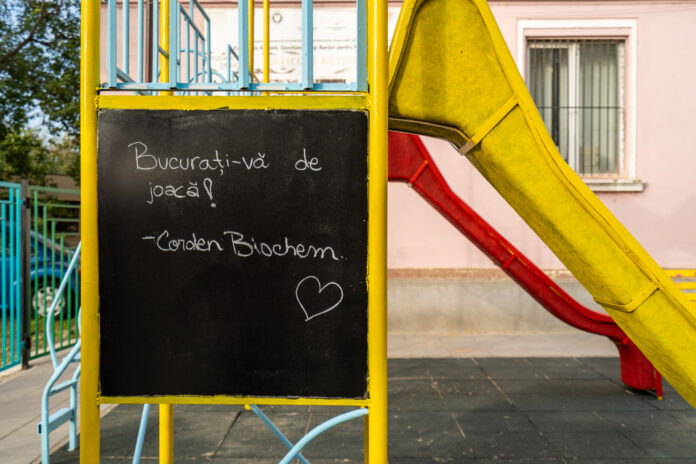 Bucurați-vă de
joacă!
-Corden Biochem.